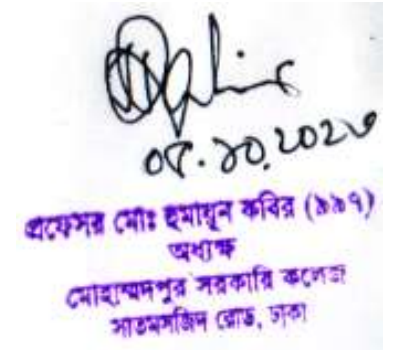 ০৮.১০.২০২৩
প্রফেসর মোঃ হুমায়ূন কবির (৯৯৭)
অধ্যক্ষ
মোহাম্মদপুর সরকারি কলেজ
সাতমসজিদ রোড, ঢাকা